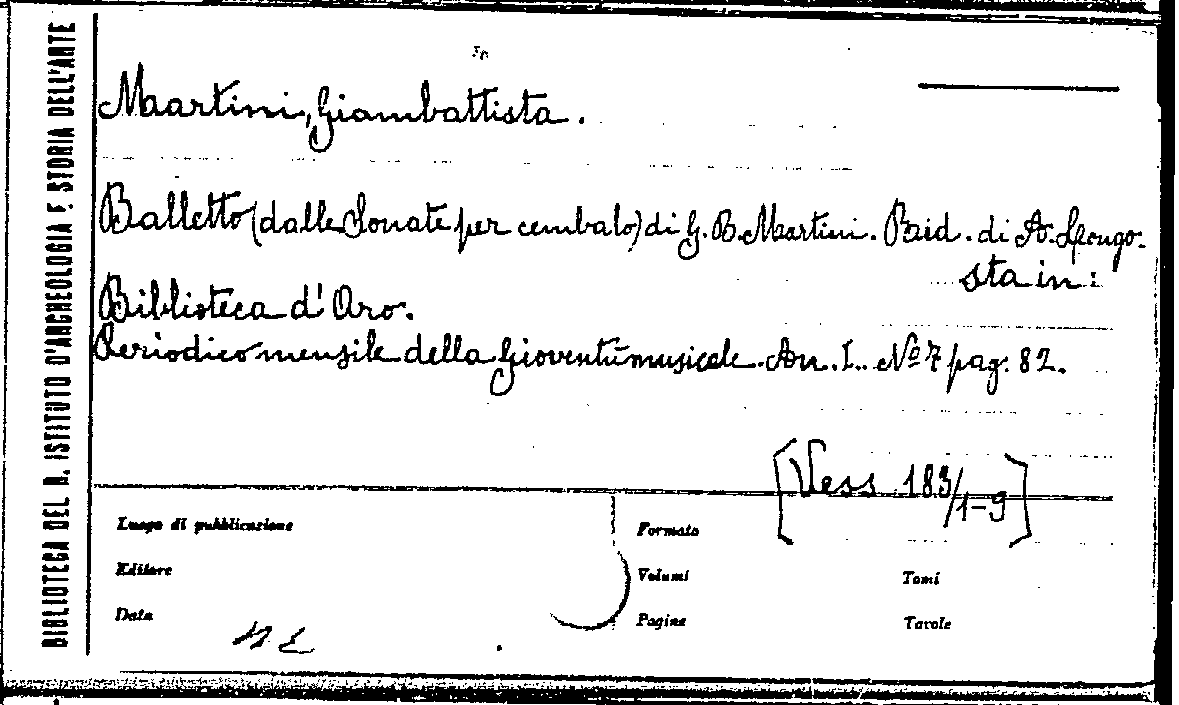 BIBLIOTECA DEL R. ISTITUTO D'ARCHEOLOGIA E STORIA DELL'ARTE
Martini, Giambattista.
Balletto (dalle Sonate per cembalo) di G. B. Martini. Rid. di A. Longo.
sta in:
Biblioteca d'Oro.
Periodico mensile della Gioventù musicale. An. I. Nº 7 pag. 82.
[Vess 183/1-9]
Luogo di pubblicazione
Formato
Editore
Volumi
Tomi
Data
Pagine
Tavole